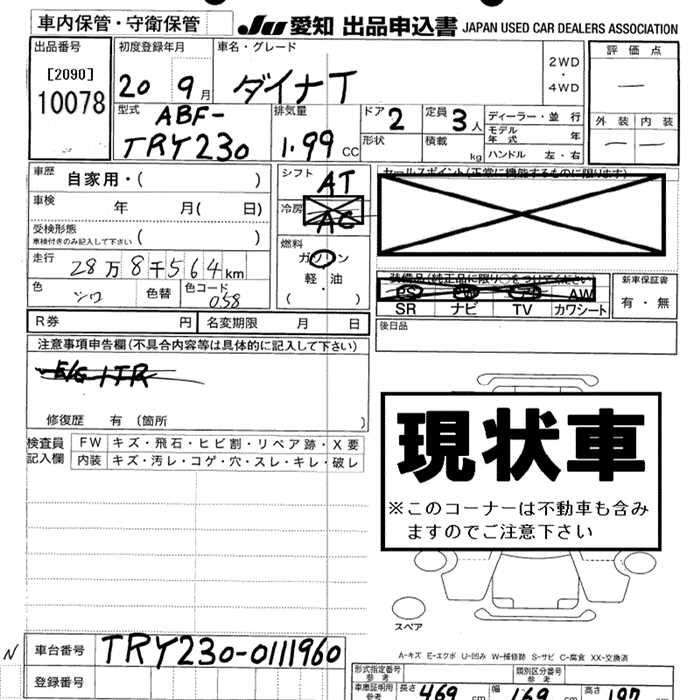 車内保管・守衛保管
JU 愛知 出品申込書 JAPAN USED CAR DEALERS ASSOCIATION
出品番号
[2090]
10078
初度登録年月
20 9月
車名・グレード
ダイナT
2WD
・
4WD
評価点
—
外装 内装
— —
型式
ABF-
TRY230
排気量
1.99 CC
ドア 2
形状
定員 3人
積載 kg
ディーラー・並行
モデル年式 年
ハンドル 左・右
車歴 自家用・( )
車検 年 月( 日)
受検形態
車検付きのみ記入して下さい ( )
走行 28万8千564km
色 シロ 色替 色コード 058
シフト AT
冷房 AC
燃料
ガソリン
軽・油
( )
セールスポイント(正常に機能するものに限ります)
装備品(純正品に限り)をつけてください
AW
SR ナビ TV カワシート
新車保証書
有・無
R券 円 名変期限 月 日
後日品
注意事項申告欄(不具合内容等は具体的に記入して下さい)
修復歴 有(箇所 )
検査員記入欄
FW キズ・飛石・ヒビ割・リペア跡・X要
内装 キズ・汚レ・コゲ・穴・スレ・キレ・破レ
現状車
※このコーナーは不動車も含み
ますのでご注意下さい
スペア
A-キズ E-エクボ U-凹み W-補修跡 S-サビ C-腐食 XX-交換済
N
車台番号 TRY230-0111960
登録番号
形式指定番号 参考
類別区分番号 参考
車庫証明用 参考 長さ 469 cm 幅 169 cm 高さ 197 cm